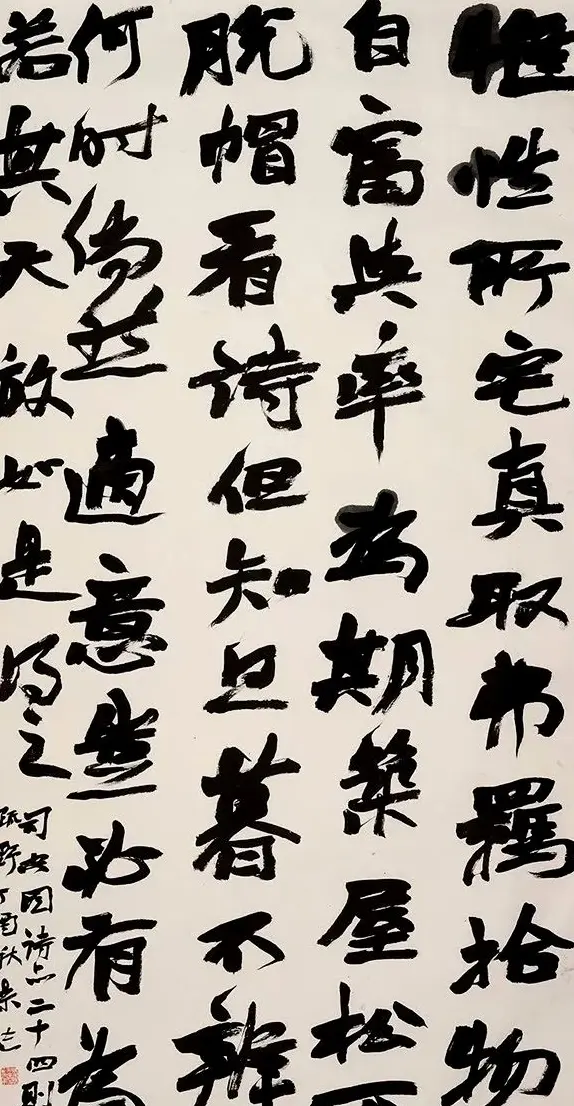 惟性所宅真取弗羈拾物
自富與率為期築屋松下
脫帽看詩但知旦暮不辨
何時倘然適意豈必有為
若其天放如是得之
司空圖詩品二十四則
疏野丁酉秋